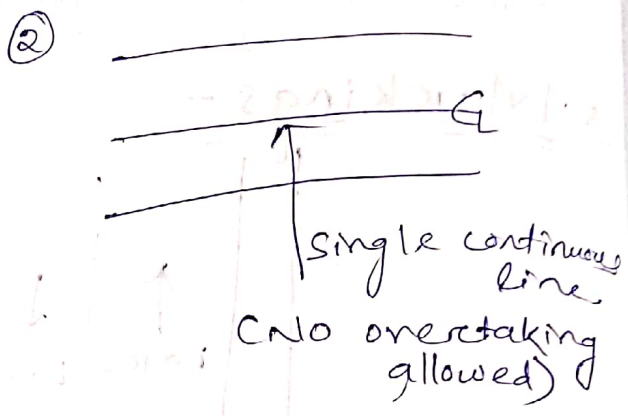 ②
G
Single continuous
line
(No overtaking
allowed)